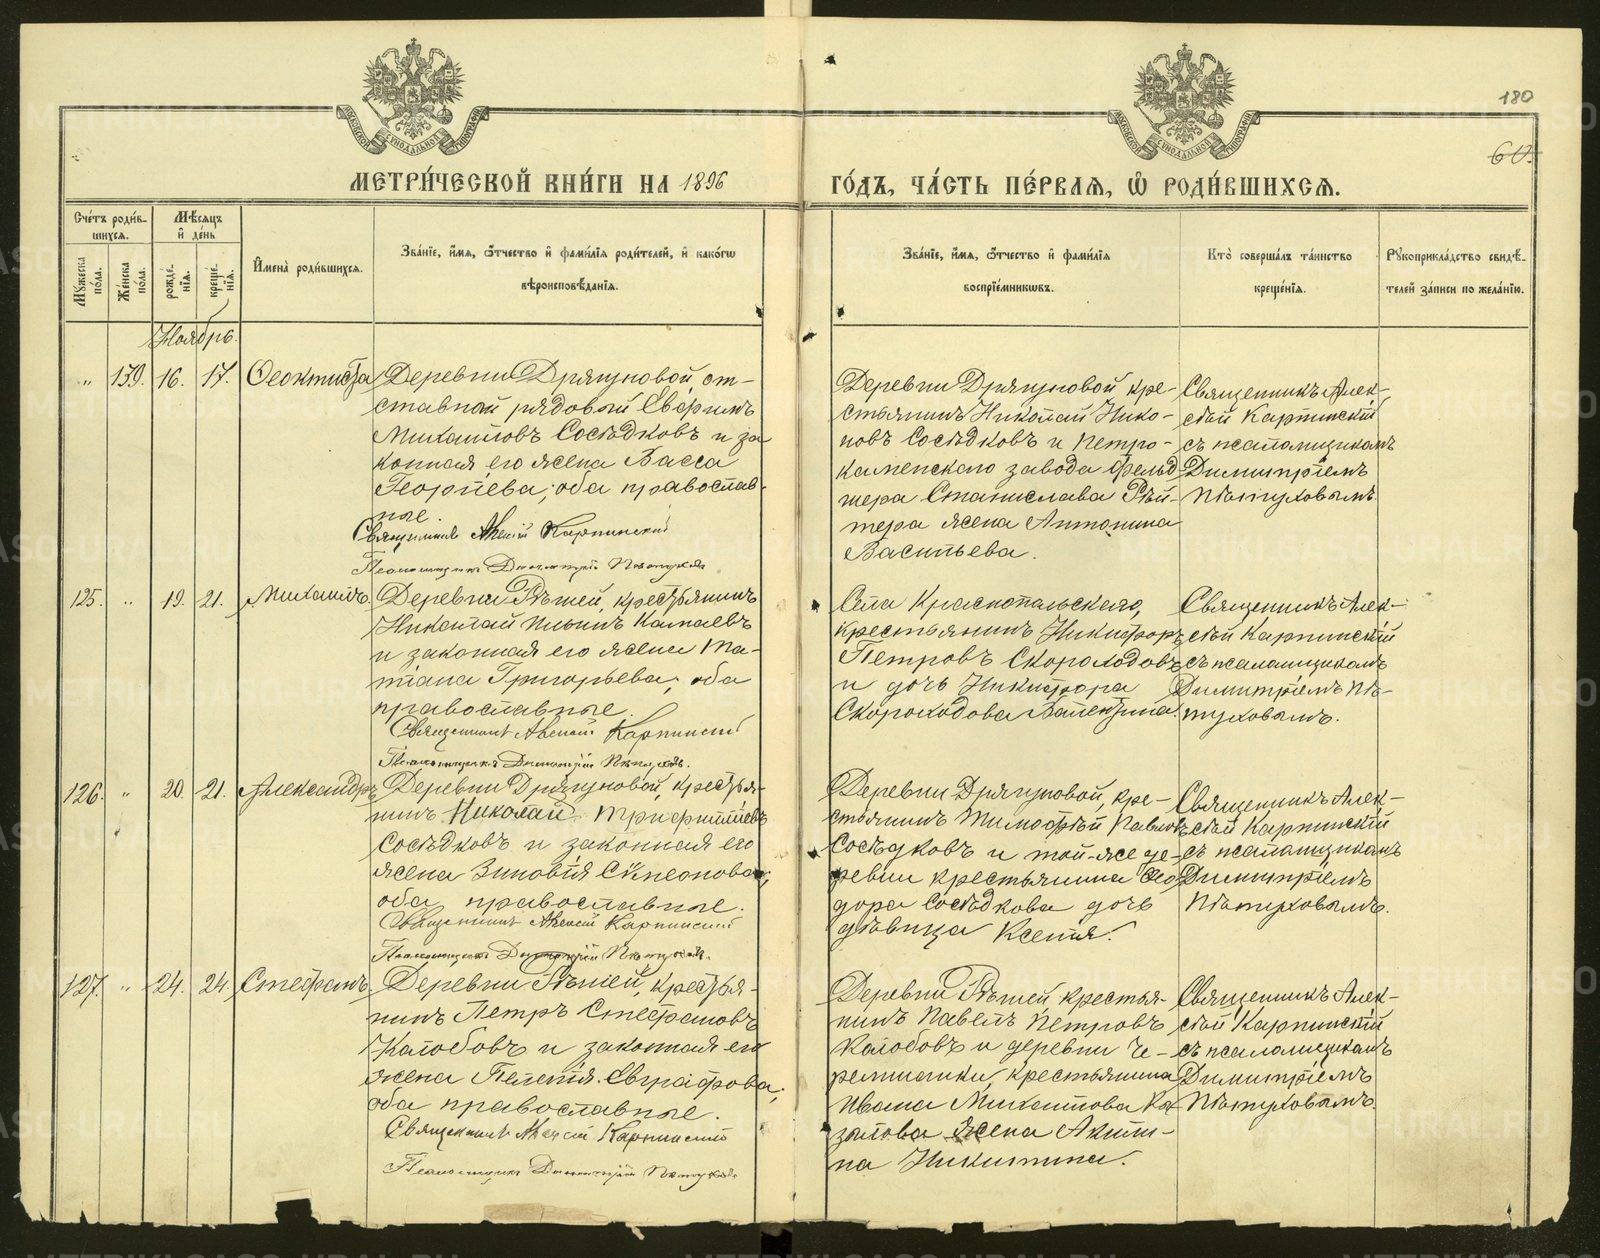 180
60.
МОСКОВСКОЙ СѴНОДАЛЬНОЙ ТИПОГРАФІИ
МОСКОВСКОЙ СѴНОДАЛЬНОЙ ТИПОГРАФІИ
МЕТРИ́ЧЕСКОЙ КНИ́ГИ НА 1896
ГО́ДЪ, ЧА́СТЬ ПЕ́РВАЯ, Ѡ҆ РОДИ́ВШИХСѦ.
Сче́тъ роди́в-
шихсѧ.
Мꙋ́жеска по́ла.
Же́нска по́ла.
Мѣ́сѧцъ и҆ де́нь
рожде́-
нїѧ.
креще́-
нїѧ.
И҆мена̀ роди́вшихсѧ.
Зва́нїе, и҆́мѧ, ѻ҆́тчество и҆ фами́лїѧ роди́телей, и҆ како́гѡ
вѣроисповѣ́данїѧ.
Зва́нїе, и҆́мѧ, ѻ҆́тчество и҆ фами́лїѧ
воспрїе́мникѡвъ.
Кто̀ соверша́лъ та́инство
креще́нїѧ.
Рꙋкоприкла́дство свидѣ́-
телей за́писи по жела́нїю.
Ноябрь.
„ 139. 16. 17. Ѳеоктиста
Деревни Дрягуновой, от-
ставной рядовый Ефимъ
Михаиловъ Сосѣдковъ и за
конная его жена Васса
Георгіева; оба православ-
ные.
Священникъ Алексій Карпинскій
Псаломщикъ Димитрій Пѣтуховъ
Деревни Дрягуновой кре-
стьянинъ Николай Нико-
новъ Сосѣдковъ и Петро-
каменскаго завода фельд
шера Станислава Рѣй-
тера жена Антонина
Васильева.
Священникъ Алек-
сѣй Карпинскій
съ псаломщикомъ
Димитріемъ
Пѣтуховымъ.
125. „ 19. 21. Михаилъ.
Деревни Рѣшей, крестьянинъ
Николай Ильинъ Камаевъ
и законная его жена Та-
тіана Григорьева; оба
православные.
Священникъ Алексій Карпинскій
Псаломщикъ Димитрій Пѣтуховъ.
Села Краснопольскаго,
крестьянинъ Никифоръ
Петровъ Скороходовъ
и дочь Никифора
Скороходова Валентина.
Священникъ Алек-
сѣй Карпинскій
съ псаломщикомъ
Димитріемъ Пѣ-
туховымъ.
126. „ 20. 21. Александръ
Деревни Дрягуновой, крестья-
нинъ Николай Трифиліевъ
Сосѣдковъ и законная его
жена Зиновія Сѵмеонова;
оба православные.
Священникъ Алексій Карпинскій
Псаломщикъ Димитрій Пѣтуховъ.
Деревни Дрягуновой, кре-
стьянинъ Тимофѣй Павловъ
Сосѣдковъ и той-же де-
ревни крестьянина Ѳео
дора Сосѣдкова дочь
дѣвица Ксенія.
Священникъ Алек-
сѣй Карпинскій
съ псаломщикомъ
Димитріемъ
Пѣтуховымъ.
127. „ 24. 24. Стефанъ.
Деревни Рѣшей, крестья-
нинъ Петръ Стефановъ
Колобовъ и законная его
жена Пелагія Евграфова;
оба православные.
Священникъ Алексій Карпинскій
Псаломщикъ Димитрій Пѣтуховъ
Деревни Рѣшей крестья-
нинъ Павелъ Петровъ
Колобовъ и деревни Че-
ремшанки, крестьянина
Ивана Михаилова Ка
зилова жена Акили-
на Никитина.
Священникъ Алек-
сѣй Карпинскій
съ псаломщикомъ
Димитріемъ
Пѣтуховымъ.